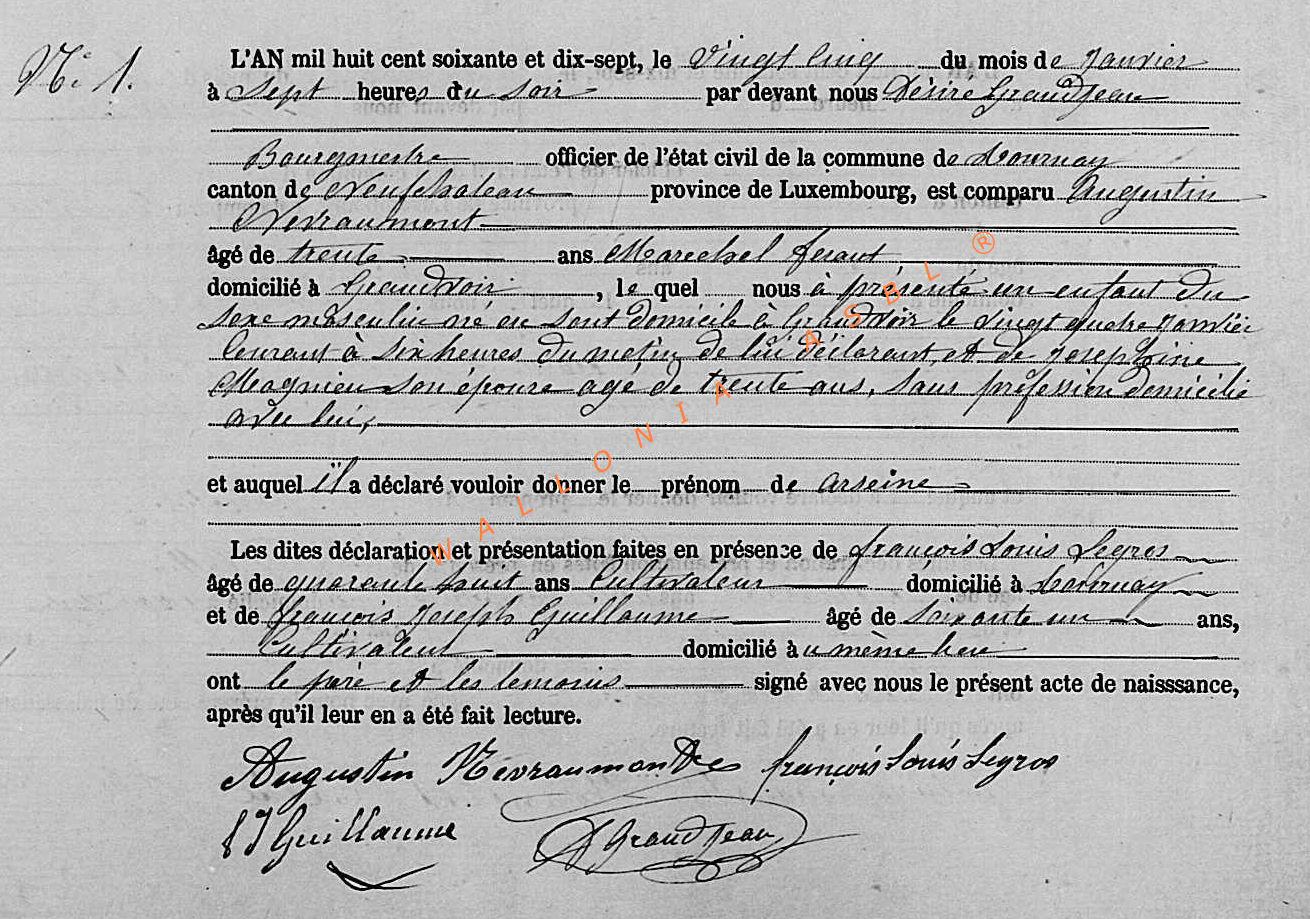 N° 1.
L'AN mil huit cent soixante et dix-sept, le vingt cinq du mois de Janvier
à Sept heures du soir par devant nous Désiré Grandjean
Bourgmestre officier de l'état civil de la commune de Tournay
canton de Neufchateau province de Luxembourg, est comparu Augustin
Nevraumont
âgé de trente ans Marechal ferant
domicilié à Grandvoir, le quel nous à présenté un enfant du
sexe masculin né en sont domicile à Grandvoir le vingt quatre Janvier
Courant à six heures du matin, de lui déclarant, et de Josephine
Magnien son épouse agé de trente ans, sans profession domicilié
avec lui,
et auquel il a déclaré vouloir donner le prénom de Arseine
Les dites déclaration et présentation faites en présence de françois Louis Legros
âgé de quarante huit ans Cultivateur domicilié à Tournay
et de françois Joseph Guillaume âgé de soixante un ans,
Cultivateur domicilié à u même lieu
ont le père et les temoins signé avec nous le présent acte de naisssance,
après qu'il leur en a été fait lecture.
Augustin Névraumont françois Louis Legros
f J Guillaume D Grandjean
WALLONIA ASBL ®